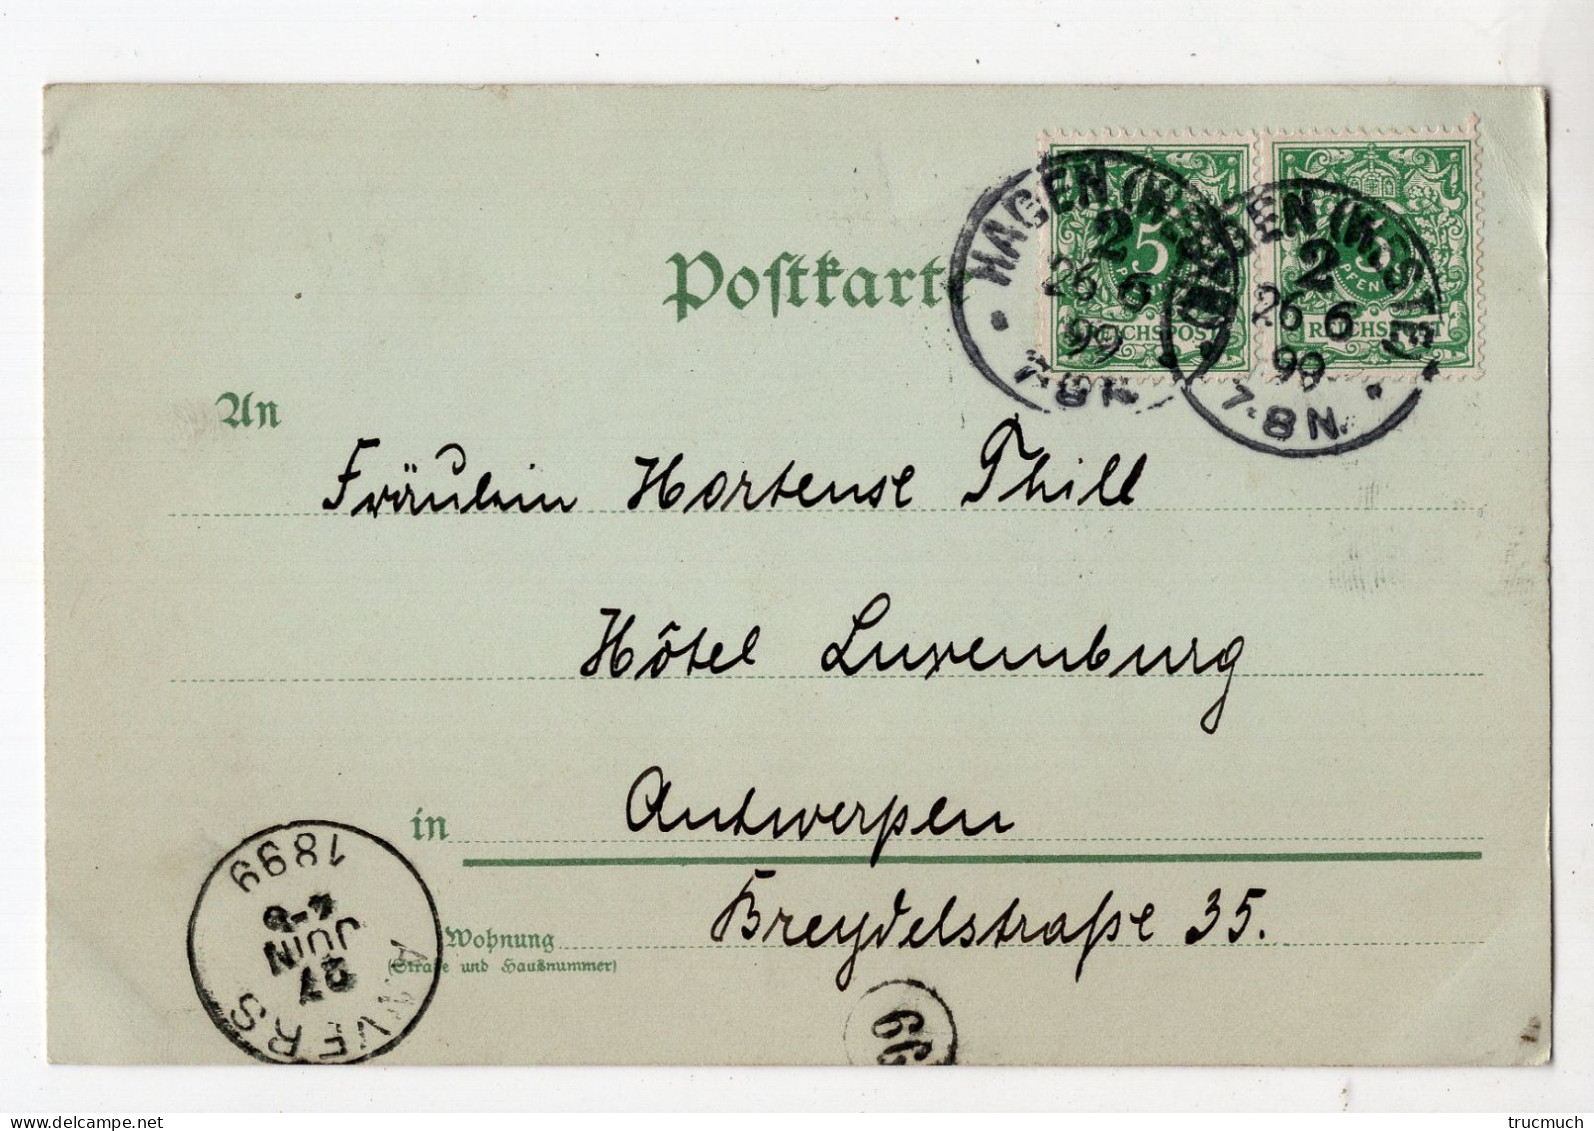 Postkarte
5
PFENNIG
REICHSPOST
5
PFENNIG
REICHSPOST
HAGEN (WESTF)
2
26 6
99
7-8N.
HAGEN (WESTF)
2
26 6
99
7-8N.
An
Fräulein Hortense Thill
Hôtel Luxemburg
in Antwerpen
Breydelstraße 35.
Wohnung
(Straße und Hausnummer)
ANVERS
27
JUIN
1899
66
trucmuch